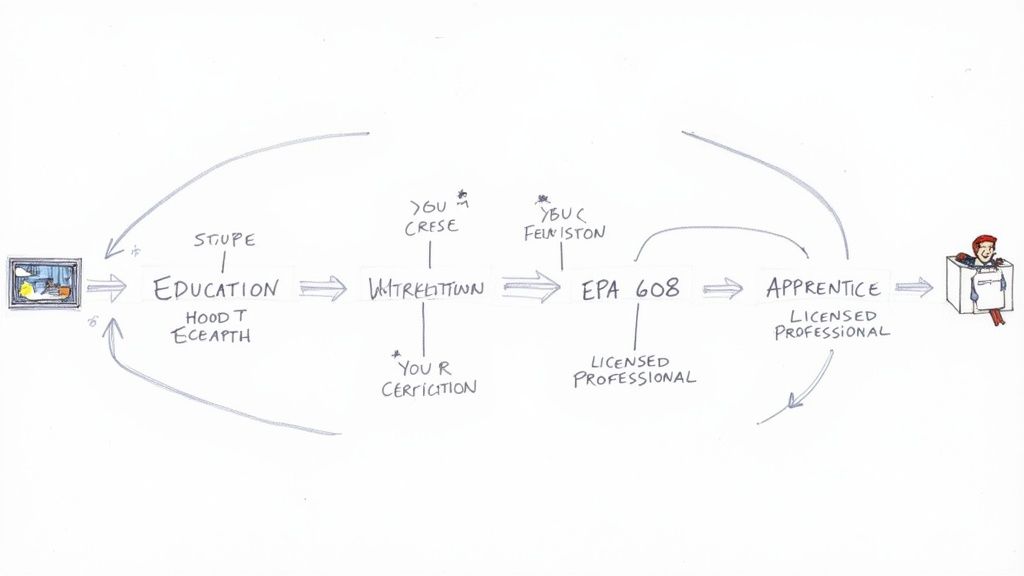 STUPE
EDUCATION
HOOD T
ECEAPTH
YOU
CRESE
YOUR
CERFICITION
YBUC
EPA 608
LICENSED
PROFESSIONAL
APPRENTICE
LICENSED
PROFESSIONAL